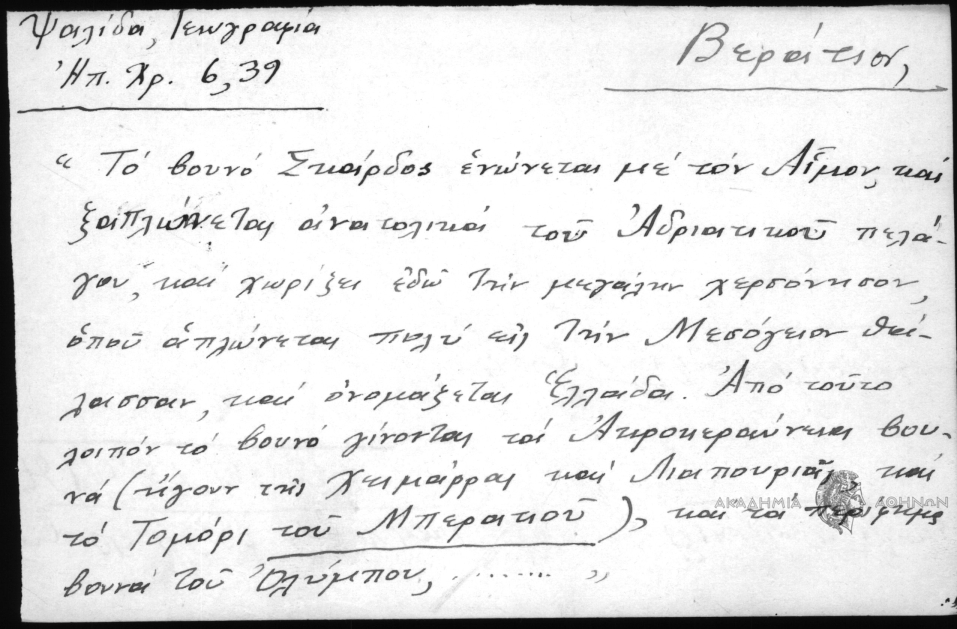 Ψαλίδα, Γεωγραφία
Ἠπ. Χρ. 6,39
Βεράτιον,
“ Τό βουνό Σκάρδος ἑνώνεται μέ τόν Αἷμον, καί
ξαπλώνεται ἀνατολικά τοῦ Ἀδριατικοῦ πελά-
γου, καί χωρίζει ἐδῶ τήν μεγάλην χερσόνησον,
ὁποῦ ἁπλώνεται πολύ εἰς τήν Μεσόγειον θά-
λασσαν, καί ὀνομάζεται Ἑλλάδα. Ἀπό τοῦτο
λοιπόν τό βουνό γίνονται τά Ἀκροκεραύνεια βου-
νά (ἤγουν τῆς Χειμάρρας καί Λιαπουριᾶς, καί
τό Τομόρι τοῦ Μπερατιοῦ), καί τά περίφημα
βουνά τοῦ Ὀλύμπου, ......... „
ΑΚΑΔΗΜΙΑ ΑΘΗΝΩΝ